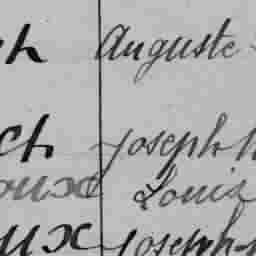 Auguste
Joseph
oux Louis
ux Joseph